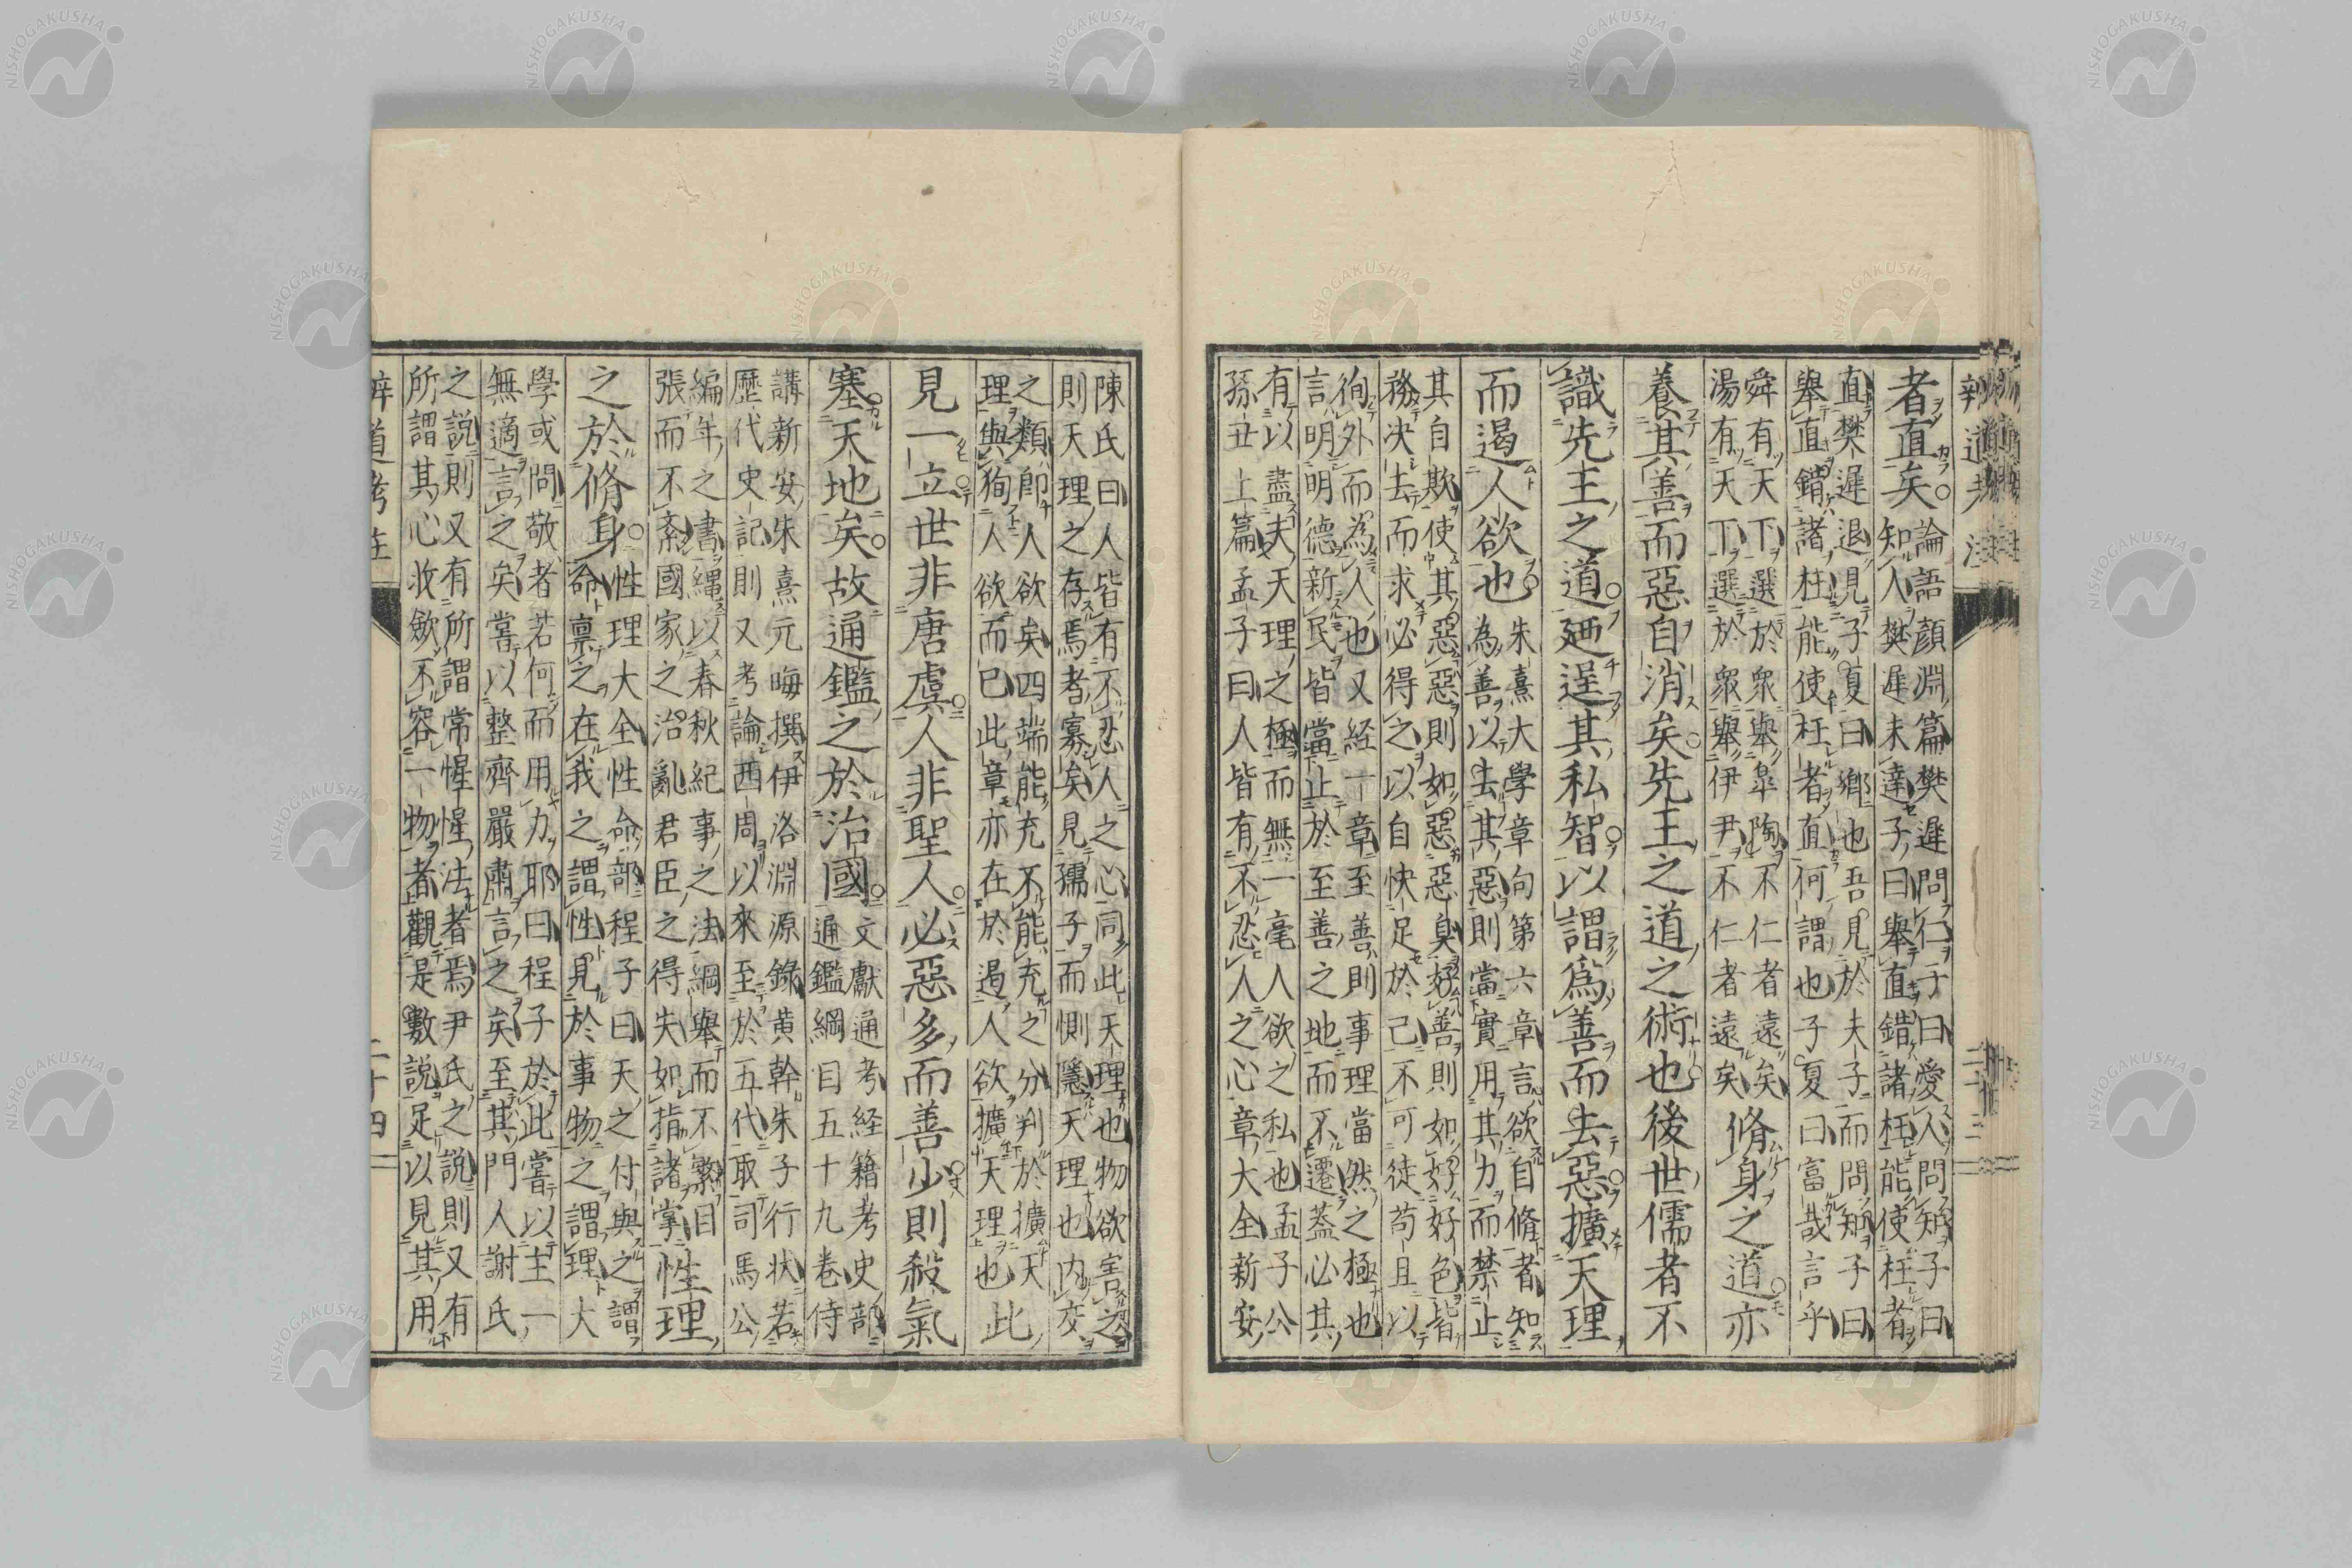 者直矣
論語顔淵篇樊遲問仁子曰愛人問知子曰
知人樊遲未達子曰舉直錯諸枉能使枉者
直樊遲退見子夏曰鄉也吾見於夫子而問知子曰
舉直錯諸枉能使枉者直何謂也子夏曰富哉言乎
舜有天下選於衆舉皐陶不仁者遠矣
湯有天下選於衆舉伊尹不仁者遠矣
脩身之道亦
養其善而惡自消矣先王之道之術也後世儒者不
識先王之道廼逞其私智以謂爲善而去惡擴天理
而遏人欲也
朱熹大學章句第六章言欲自脩者知
為善以去其惡則當實用其力而禁止
其自欺使其惡惡則如惡惡臭好善則如好好色皆
務决去而求必得之以自快足於己不可徒苟且以
徇外而為人也又経一章至善則事理當然之極也
言明明德新民皆當止於至善之地而不遷葢必其
有以盡夫天理之極而無一毫人欲之私也孟子公
孫丑上篇孟子曰人皆有不忍人之心章大全新安
陳氏曰人皆有不忍人之心同此天理也物欲害之
則天理之存焉者寡矣見孺子而惻隱天理也内交
之類卽人欲矣四端能充不能充之分判於擴天
理與徇人欲而已此章亦在於遏人欲擴天理也
此
見一立世非唐虞人非聖人必惡多而善少則殺氣
塞天地矣故通鑑之於治國
文獻通考経籍考史部
通鑑綱目五十九卷侍
講新安朱熹元晦撰伊洛淵源錄黄幹朱子行状若
歷代史記則又考論西周以來至於五代取司馬公
編年之書繩以春秋紀事之法綱舉而不繁目
張而不紊國家之治亂君臣之得失如指諸掌
性理
之於脩身
性理大全性命部程子曰天之付與之謂
命稟之在我之謂性見於事物之謂理大
學或問敬者若何而用力耶曰程子於此嘗以主一
無適言之矣嘗以整齊嚴肅言之矣至其門人謝氏
之說則又有所謂常惺惺法者焉尹氏之說則又有
所謂其心收斂不容一物者觀是數說足以見其用
二十四